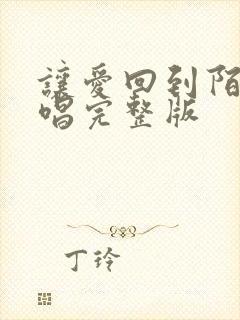 讓愛回到陌
唱完整版
丁玲